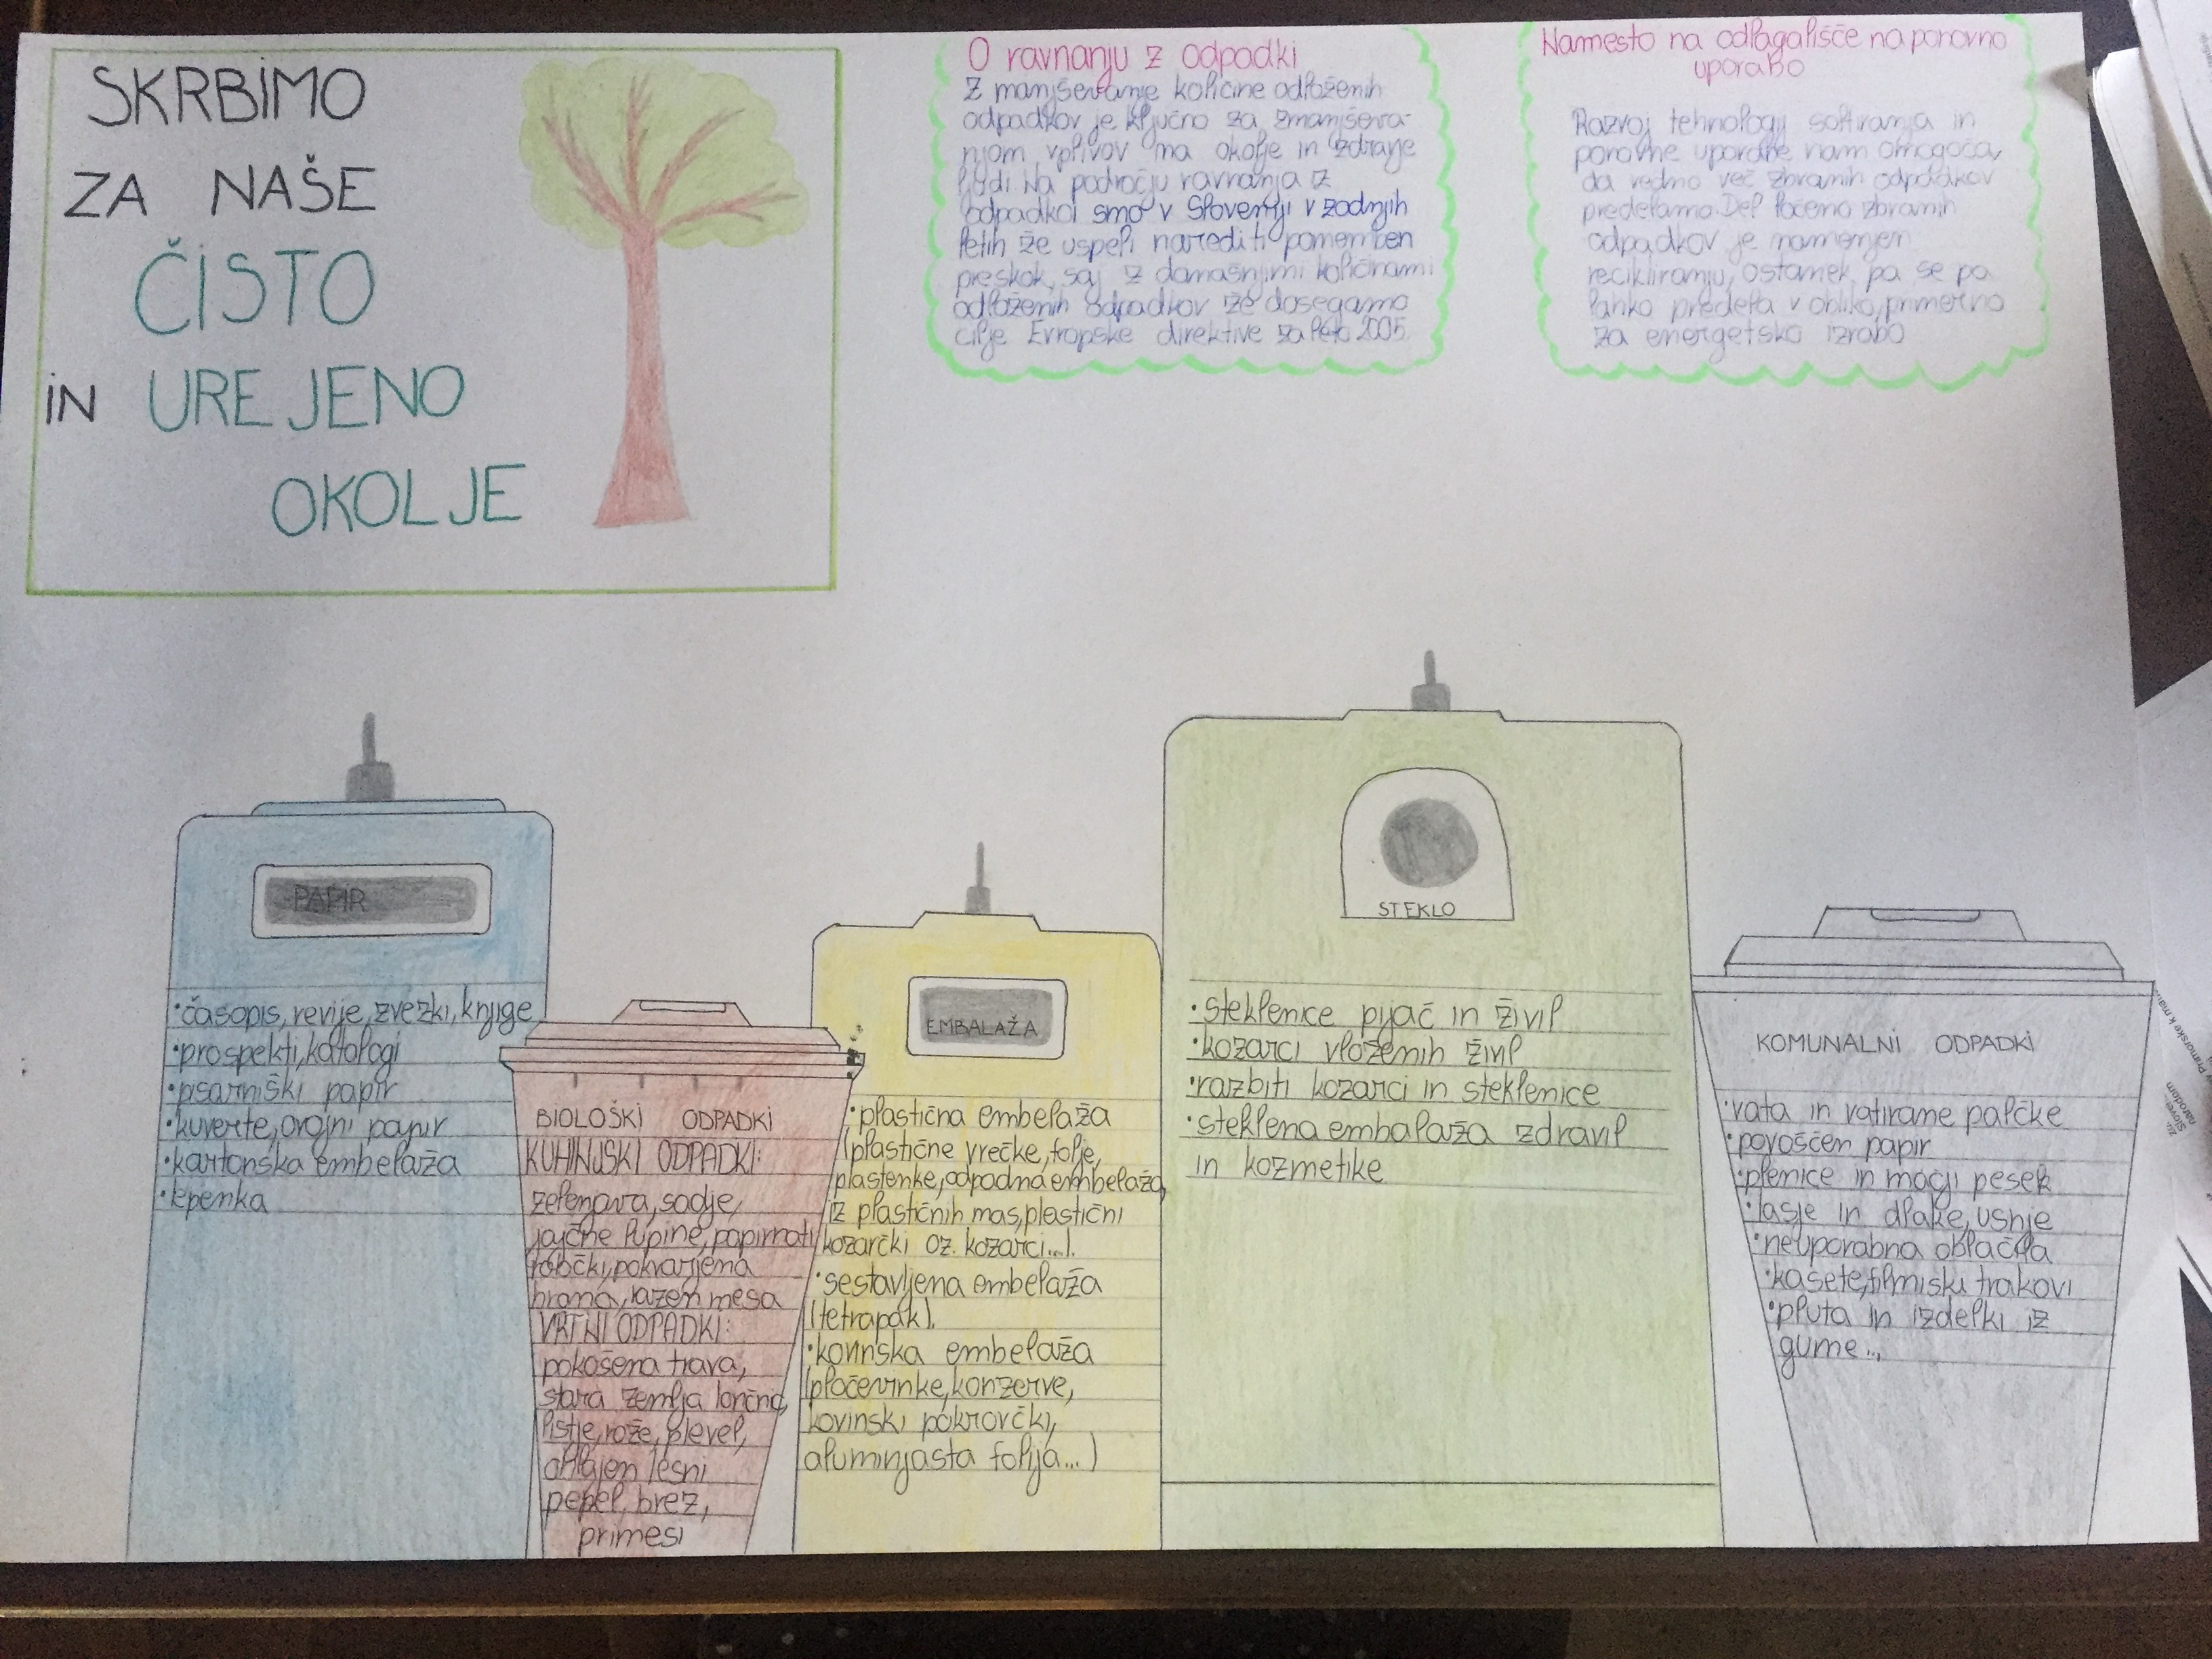 SKRBIMO
ZA NAŠE
ČISTO
IN UREJENO
OKOLJE
O ravnanju z odpadki
Z manjševanje količine odloženih
odpadkov je ključno za zmanjševa-
njom vplivov na okolje in zdravje
ljudi. Na področju ravnanja z
odpadkoi smo v Sloveniji v zadnjih
letih že uspeli narediti pomemben
preskok, saj z današnjimi količinami
odloženih odpadkov že dosegamo
cilje Evropske direktive za leto 2005.
Namesto na odlagališče na ponovno
uporabo
Razvoj tehnologij sortiranja in
ponovne uporabe nam omogoča,
da vedno več zbranih odpadkov
predelamo. Del ločeno zbranih
odpadkov je namenjen
recikliranju, ostanek pa se pa
lahko predela v obliko, primerno
za energetsko izrabo
PAPIR
•časopis, revije, zvezki, knjige
•prospekti, katalogi
•pisarniški papir
•kuverte, ovojni papir
•kartonska embelaža
•lepenka
BIOLOŠKI ODPADKI
KUHINJSKI ODPADKI:
zelenjava, sadje,
jajčne lupine, papirnati
robčki, pokvarjena
hrana, razen mesa
VRTNI ODPADKI:
pokošena trava,
stara zemlja lončnic,
listje, rože, plevel,
ohlajen lesni
pepel, brez,
primesi
EMBALAŽA
•plastična embelaža
(plastične vrečke, folje,
plastenke, odpadna embelaža,
iz plastičnih mas, plastični
kozarčki oz. kozarci...).
•sestavljena embelaža
(tetrapak).
•kovinska embelaža
(pločevinke, konzerve,
kovinski pokrovčki,
aluminjasta folija...)
STEKLO
•steklenice pijač in živil
•kozarci vloženih živil
•razbiti kozarci in steklenice
•steklena embalaža zdravil
in kozmetike
KOMUNALNI ODPADKI
•vata in vatirane palčke
•povoščen papir
•plenice in mačji pesek
•lasje in dlake, usnje
•neuporabna oblačila
•kasete, filmiski trakovi
•pluta in izdelki iz
gume...